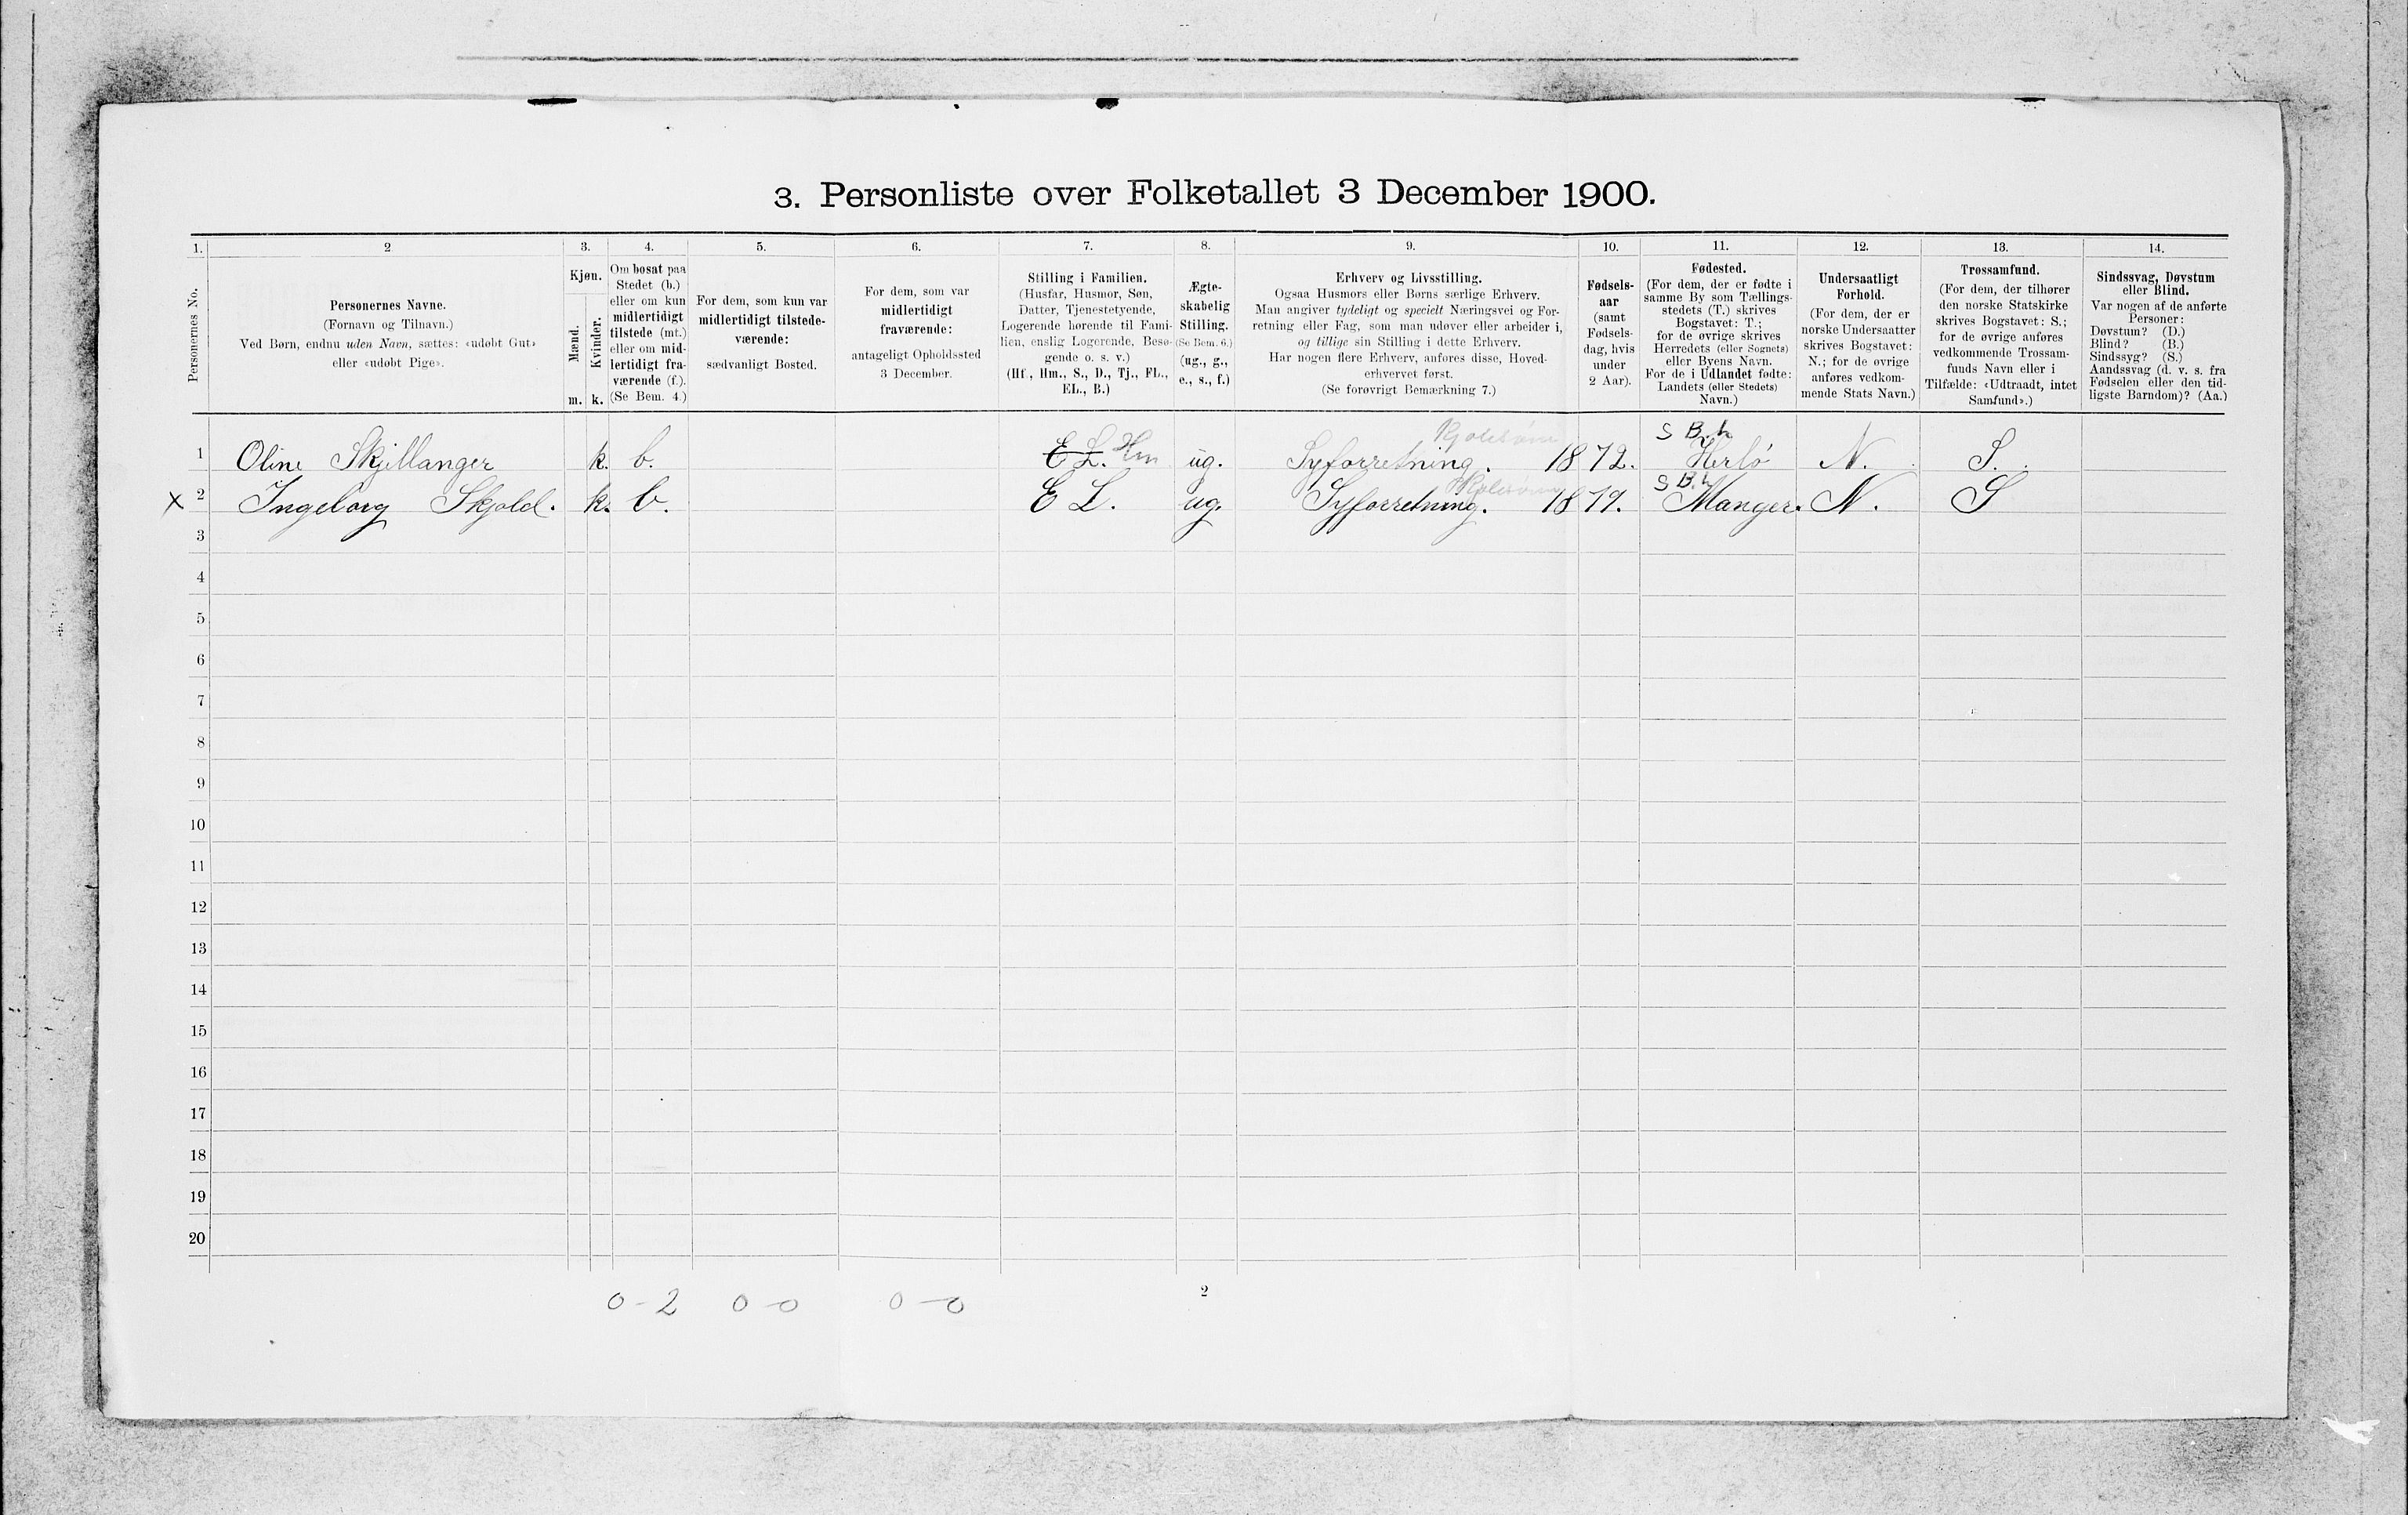 3. Personliste over Folketallet 3 December 1900.
1. 2 3. 4. 5. 6. 7. 8. 9. 10. 11. 12. 13. 14.
Personernes No.
Personernes Navne.
(Fornavn og Tilnavn.)
Ved Børn, endnu uden Navn, sættes: «udøbt Gut»
eller «udøbt Pige».
Kjøn.
Mænd.
Kvinder.
m. k.
Om bosat paa
Stedet (b.)
eller om kun
midlertidigt
tilstede (mt.)
eller om mid-
lertidigt fra-
værende (f.).
(Se Bem. 4.)
For dem, som kun var
midlertidigt tilstede-
værende:
sædvanligt Bosted.
For dem, som var
midlertidigt
fraværende:
antageligt Opholdssted
3 December.
Stilling i Familien.
(Husfar, Husmor, Søn,
Datter, Tjenestetyende,
Logerende hørende til Fami-
lien, enslig Logerende, Besø-
gende o. s. v.)
(Hf., Hm., S., D., Tj., FL.,
EL., B.)
Ægte-
skabelig
Stilling.
(Se Bem. 6.)
(ug., g.,
e., s., f.)
Erhverv og Livsstilling.
Ogsaa Husmors eller Børns særlige Erhverv.
Man angiver tydeligt og specielt Næringsvei og For-
retning eller Fag, som man udøver eller arbeider i,
og tillige sin Stilling i dette Erhverv.
Har nogen flere Erhverv, anføres disse, Hoved-
erhvervet først.
(Se forøvrigt Bemærkning 7.)
Fødsels-
aar
(samt
Fødsels-
dag, hvis
under
2 Aar).
Fødested.
(For dem, der er fødte i
samme By som Tællings-
stedets (T.) skrives
Bogstavet: T.;
for de øvrige skrives
Herredets (eller Sognets)
eller Byens Navn.
For de i Udlandet fødte:
Landets (eller Stedets)
Navn.)
Undersaatligt
Forhold.
(For dem, der er
norske Undersaatter
skrives Bogstavet:
N.; for de øvrige
anføres vedkom-
mende Stats Navn.)
Trossamfund.
(For dem, der tilhører
den norske Statskirke
skrives Bogstavet: S.;
for de øvrige anføres
vedkommende Trossam-
funds Navn eller i
Tilfælde: «Udtraadt, intet
Samfund».)
Sindssvag, Døvstum
eller Blind.
Var nogen af de anførte
Personer:
Døvstum? (D.)
Blind? (B.)
Sindssyg? (S.)
Aandssvag (d. v. s. fra
Fødselen eller den tid-
ligste Barndom)? (Aa.)
S B.h
1 Oline Skjellanger k. b. E L. Hm ug. Syforretning. 1872. Herlö N. S.
S B.h
x 2 Ingeborg Skjold. k. b. E L. ug. Syforretning. 1879. Manger. N. S
3
4
5
6
7
8
9
10
11
12
13
14
15
16
17
18
19
20
0-2 0-0 0-0
2